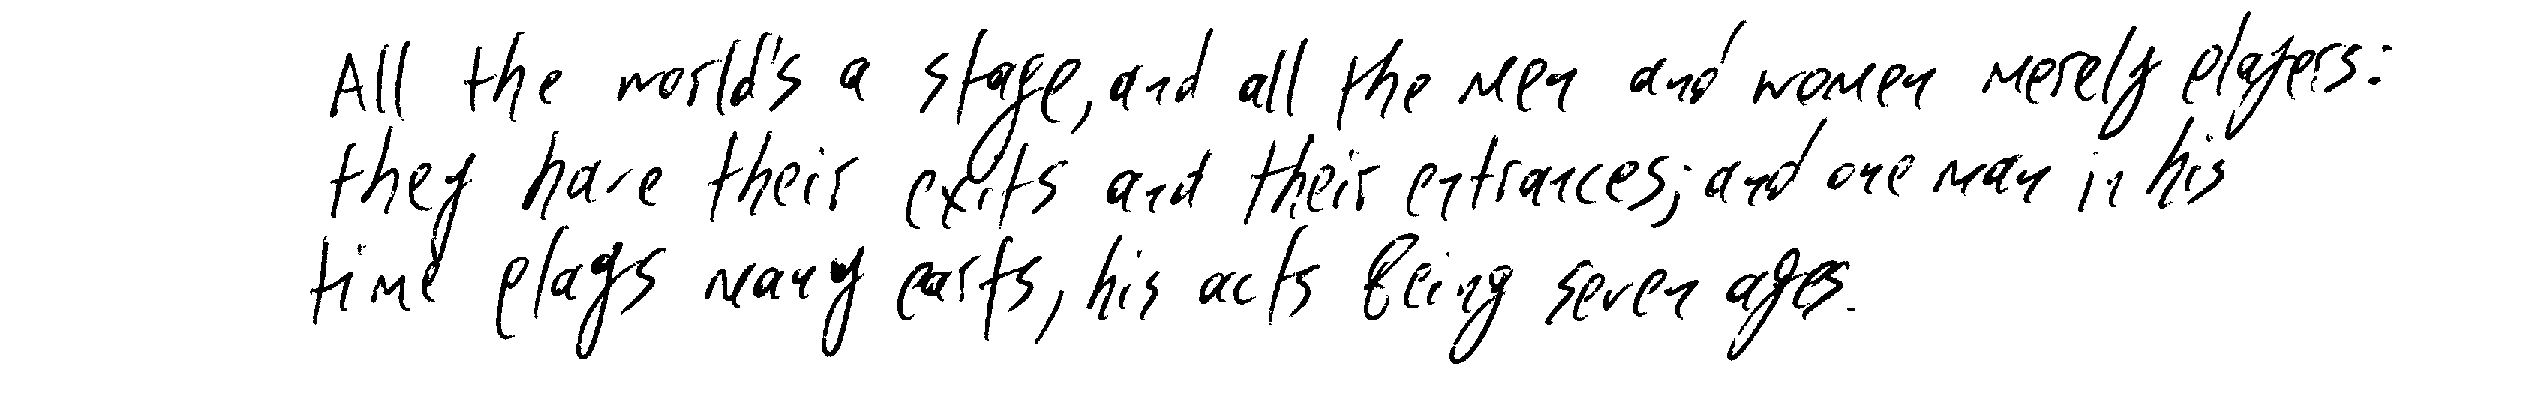 All the world's a stage, and all the men and women merely players:
they have their exits and their entrances; and one man in his
time plays many parts, his acts being seven ages.